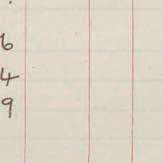 6
4
9